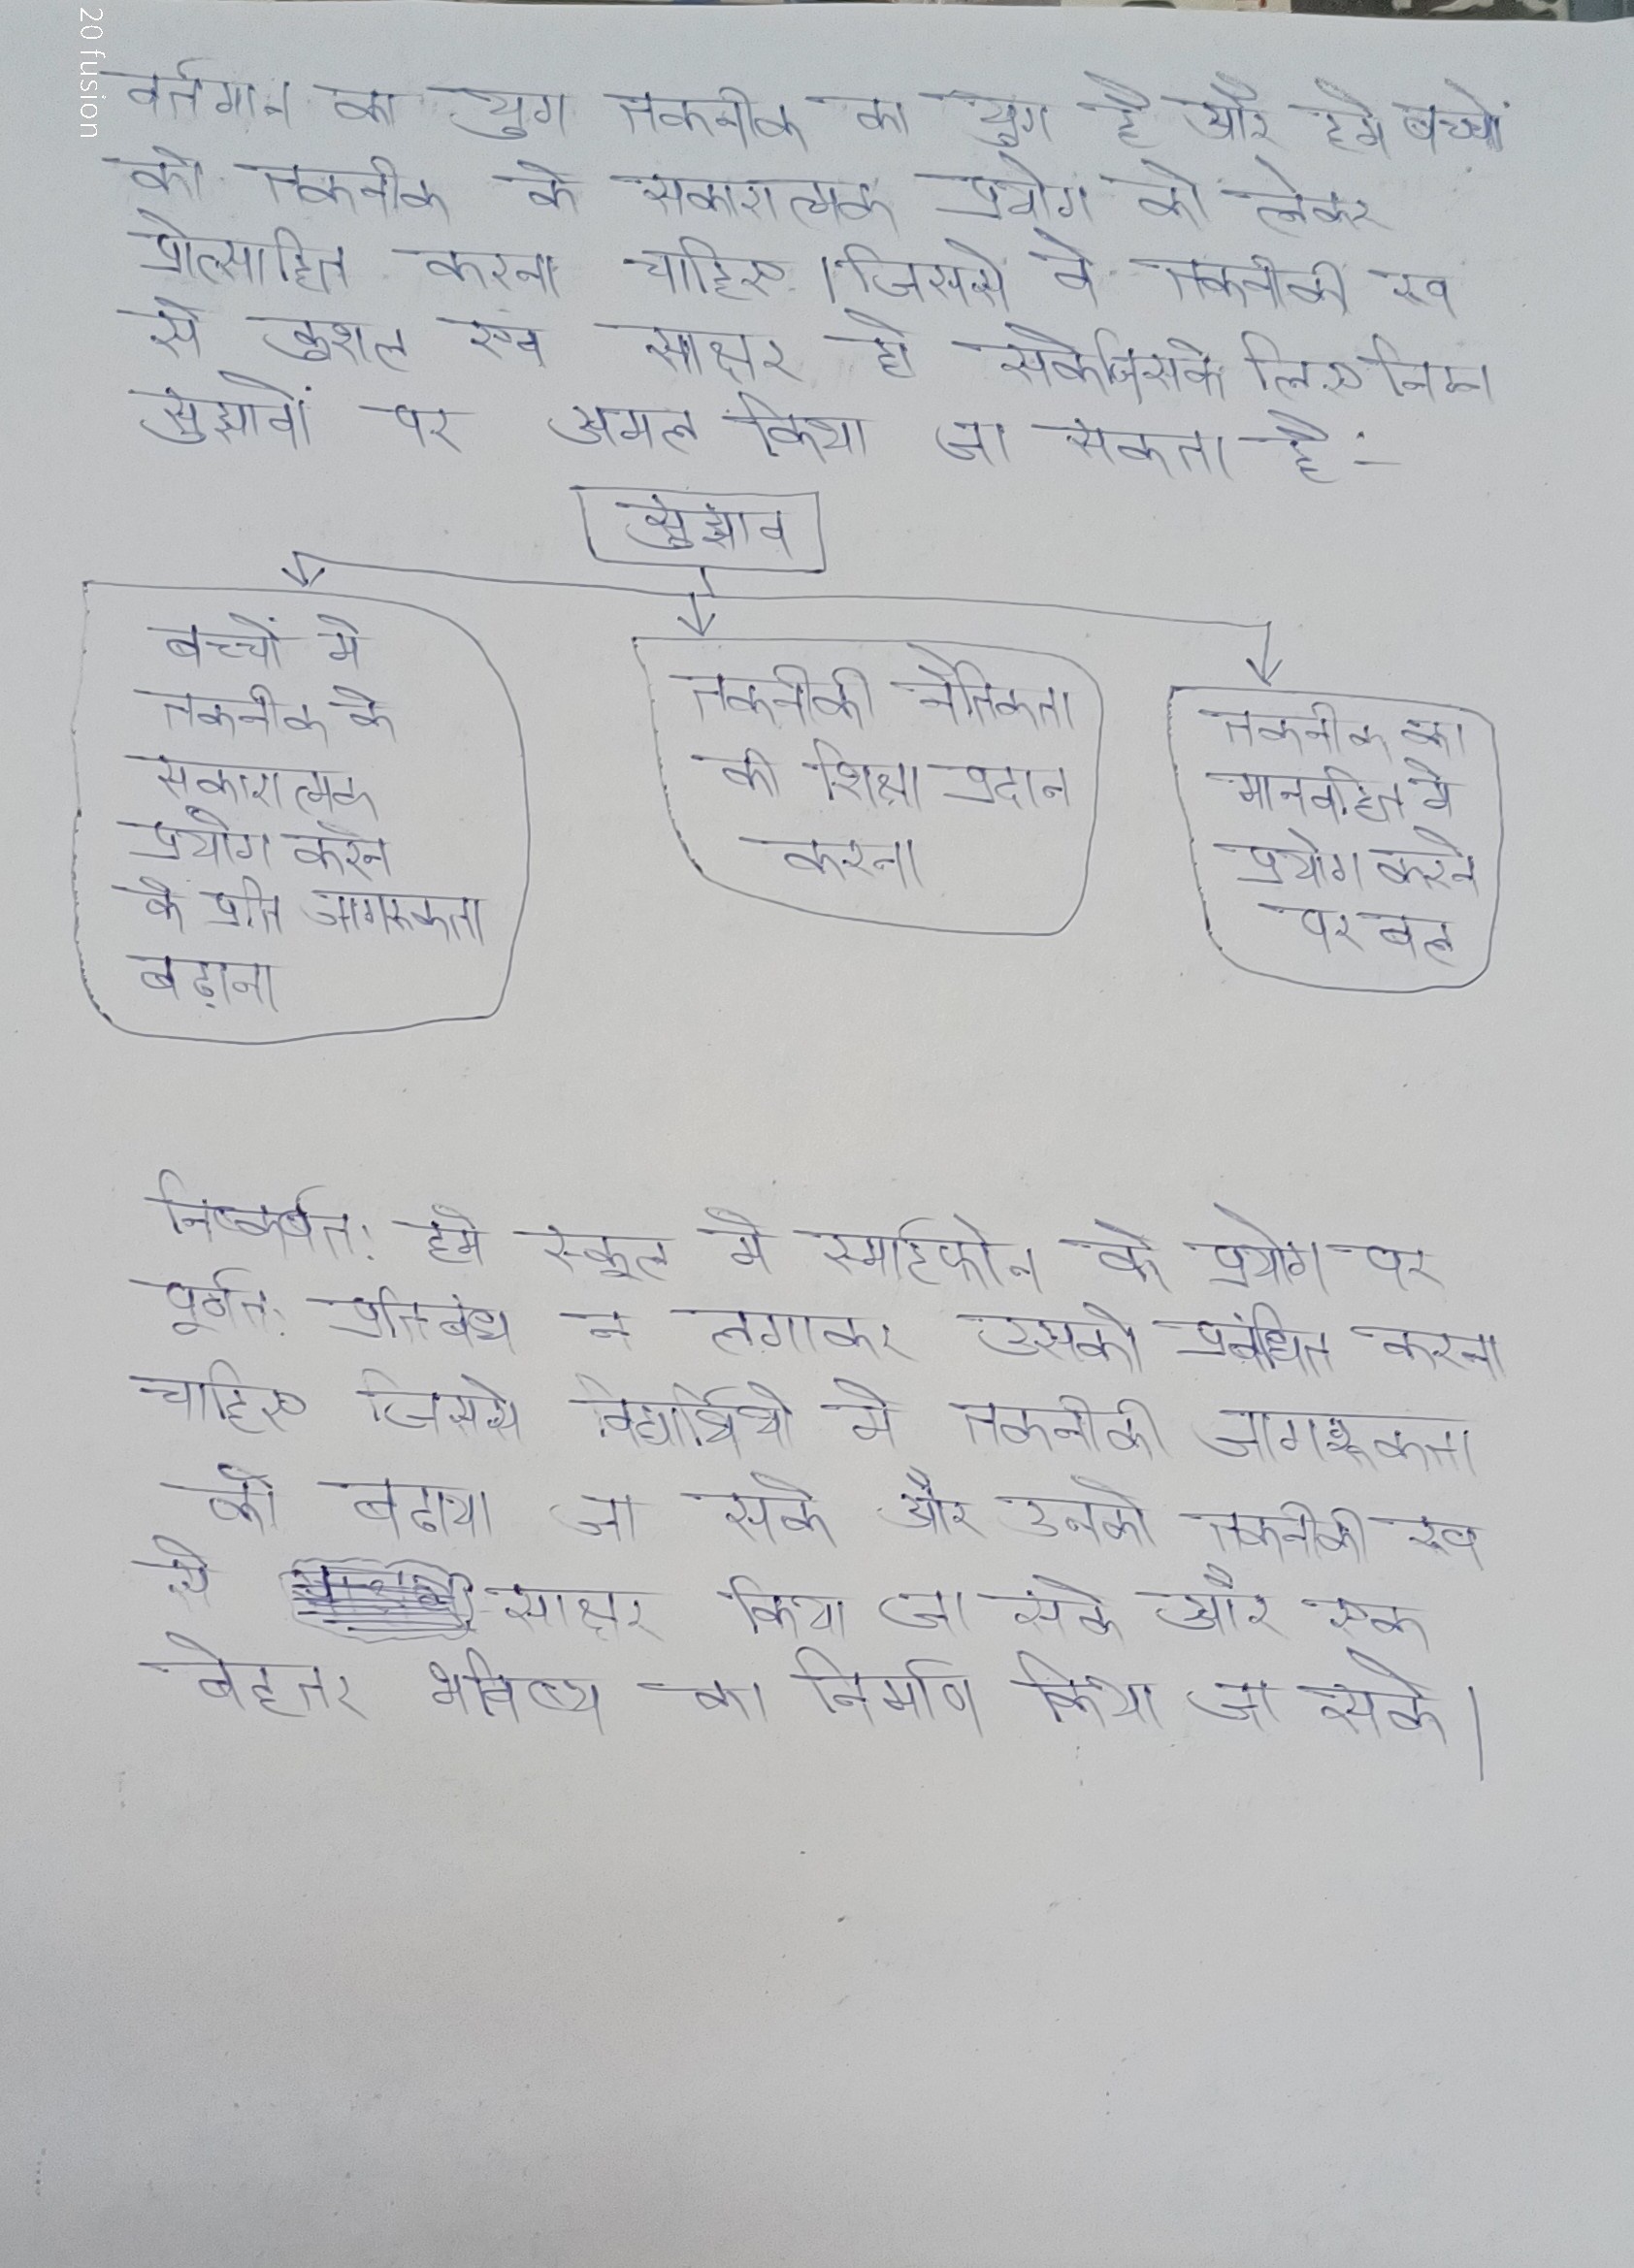 20 fusion
वर्तमान का युग तकनीक का युग है और हमे बच्चों
को तकनीक के सकारात्मक प्रयोग को लेकर
प्रोत्साहित करना चाहिए। जिससे वे तकनीकी रूप
से कुशल एवं साक्षर हो सके जिसके लिए निम्न
सुझावों पर अमल किया जा सकता है :-
सुझाव
बच्चों मे
तकनीक के
सकारात्मक
प्रयोग करने
के प्रति जागरूकता
बढ़ाना
तकनीकी नैतिकता
की शिक्षा प्रदान
करना
तकनीक का
मानवहित मे
प्रयोग करने
पर बल
निष्कर्षतः हमे स्कूल मे स्मार्टफोन के प्रयोग पर
पूर्णतः प्रतिबंध न लगाकर उसको प्रबंधित करना
चाहिए जिससे विद्यार्थियो मे तकनीकी जागरूकता
को बढाया जा सके और उनको तकनीकी रूप
से साक्षर किया जा सके और एक
बेहतर भविष्य का निर्माण किया जा सके|